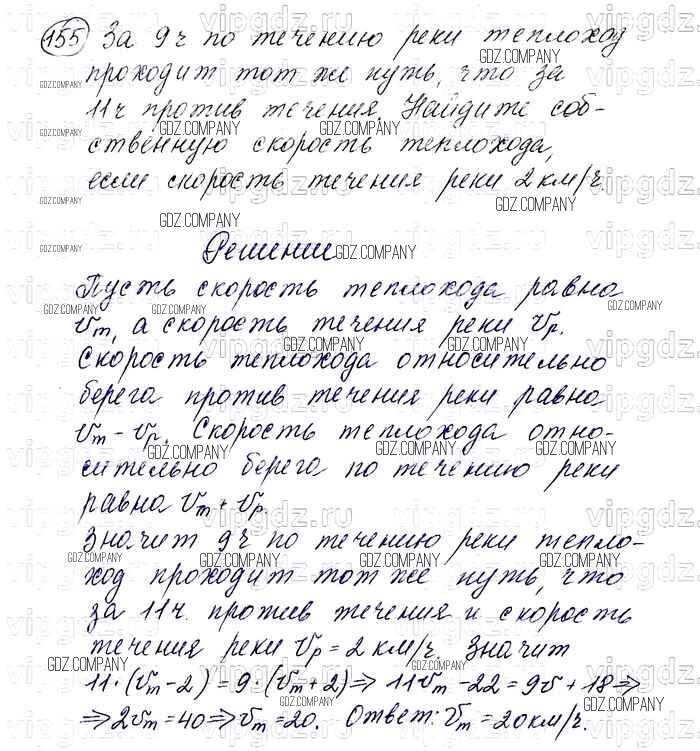 155 За 9ч по течению реки теплоход
проходит тот же путь, что за
11ч против течения. Найдите соб-
ственную скорость теплохода,
если скорость течения реки 2 км/ч.
Решение
Пусть скорость теплохода равна
Vт, а скорость течения реки Vр.
Скорость теплохода относительно
берега против течения реки равна
Vт - Vр. Скорость теплохода отно-
сительно берега по течению реки
равна Vт + Vр.
Значит 9ч по течению реки тепло-
ход проходит тот же путь, что
за 11ч. против течения и скорость
течения реки Vр = 2 км/ч. Значит
11·(Vт-2) = 9·(Vт+2) ⇒ 11Vт -22 = 9V + 18 ⇒
⇒ 2Vт = 40 ⇒ Vт = 20. Ответ: Vт = 20км/ч.
GDZ.COMPANY
vipgdz.ru